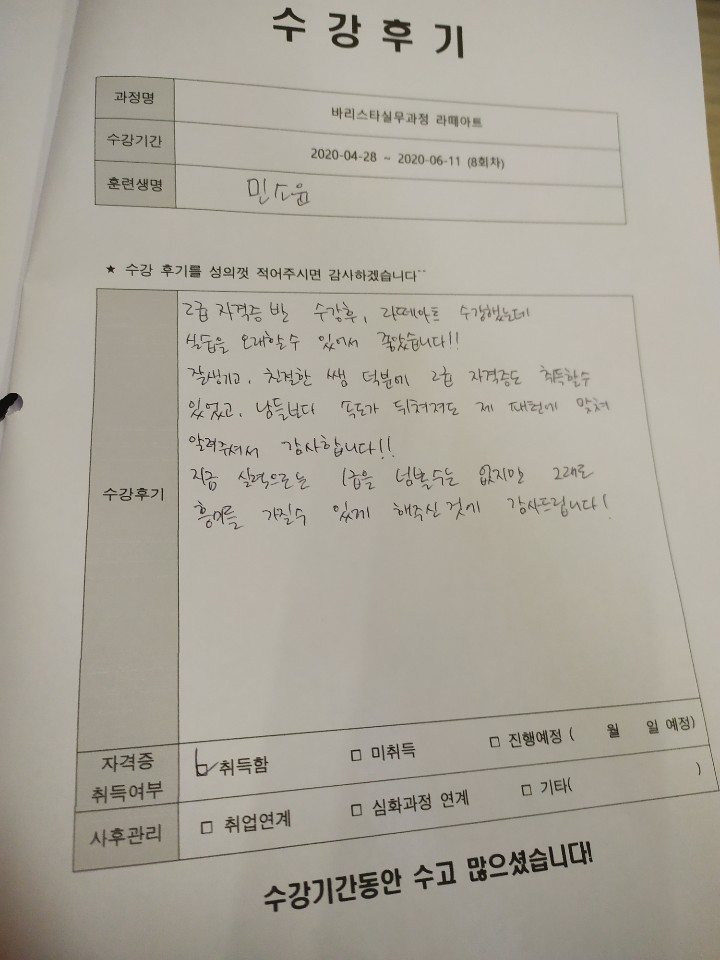 수 강 후 기
과정명 바리스타실무과정 라떼아트
수강기간 2020-04-28 ~ 2020-06-11 (8회차)
훈련생명 민소윤
★ 수강 후기를 성의껏 적어주시면 감사하겠습니다^^
수강후기
2급 자격증 반 수강후, 라떼아트 수강했는데
실습을 오래할수 있어서 좋았습니다!!
잘생기고, 친절한 쌤 덕분에 2급 자격증도 취득할수
있었고, 남들보다 속도가 뒤쳐져도 제 패턴에 맞춰
알려주셔서 감사합니다!!
지금 실력으로는 1급을 넘볼수는 없지만 그래도
흥미를 가질수 있게 해주신것에 감사드립니다!
자격증 취득여부 ☑ 취득함 □ 미취득 □ 진행예정 ( 월 일 예정)
사후관리 □ 취업연계 □ 심화과정 연계 □ 기타( )
수강기간동안 수고 많으셨습니다!